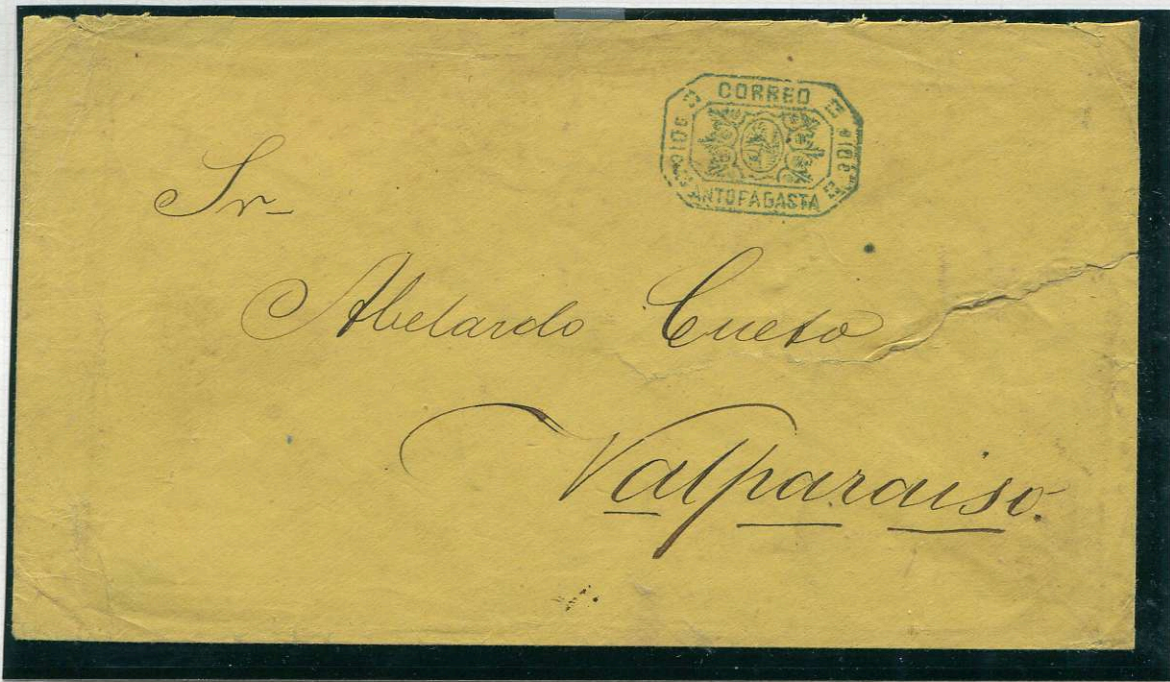 CORREO
ANTOFAGASTA
Sr-
Abelardo Cueto
Valparaiso.